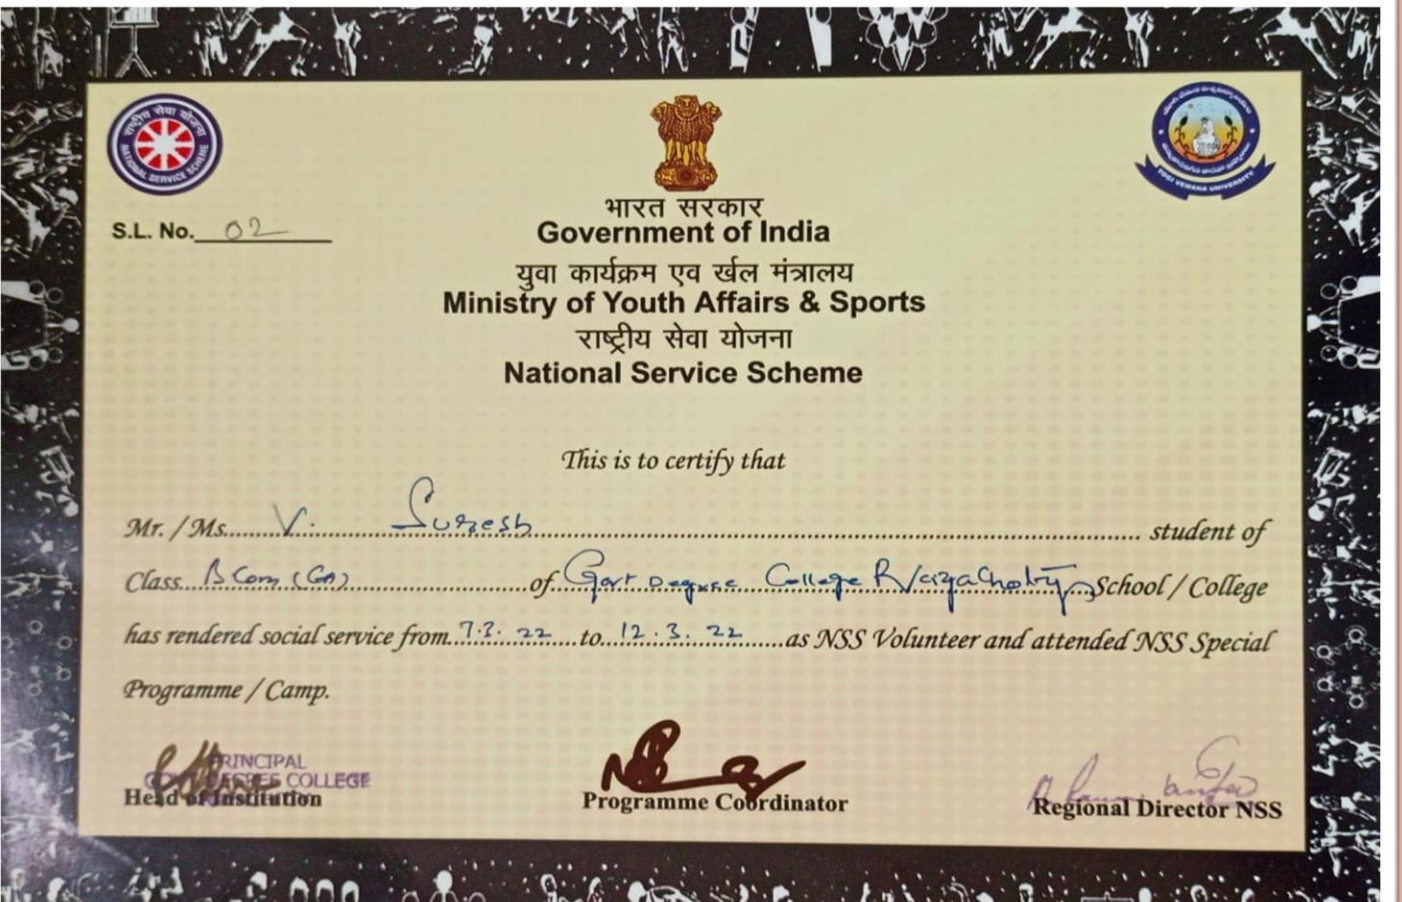 राष्ट्रीय सेवा योजना
NATIONAL SERVICE SCHEME
YOGI VEMANA UNIVERSITY
S.L. No. 02
भारत सरकार
Government of India
युवा कार्यक्रम एव र्खल मंत्रालय
Ministry of Youth Affairs & Sports
राष्ट्रीय सेवा योजना
National Service Scheme
This is to certify that
Mr. / Ms. V. Suresh student of
Class B Com (CA) of Govt Degree College School / College
has rendered social service from 7.3.22 to 12.3.22 as NSS Volunteer and attended NSS Special
Programme / Camp.
PRINCIPAL
GOVT DEGREE COLLEGE
Head of Institution
Programme Coordinator
Regional Director NSS